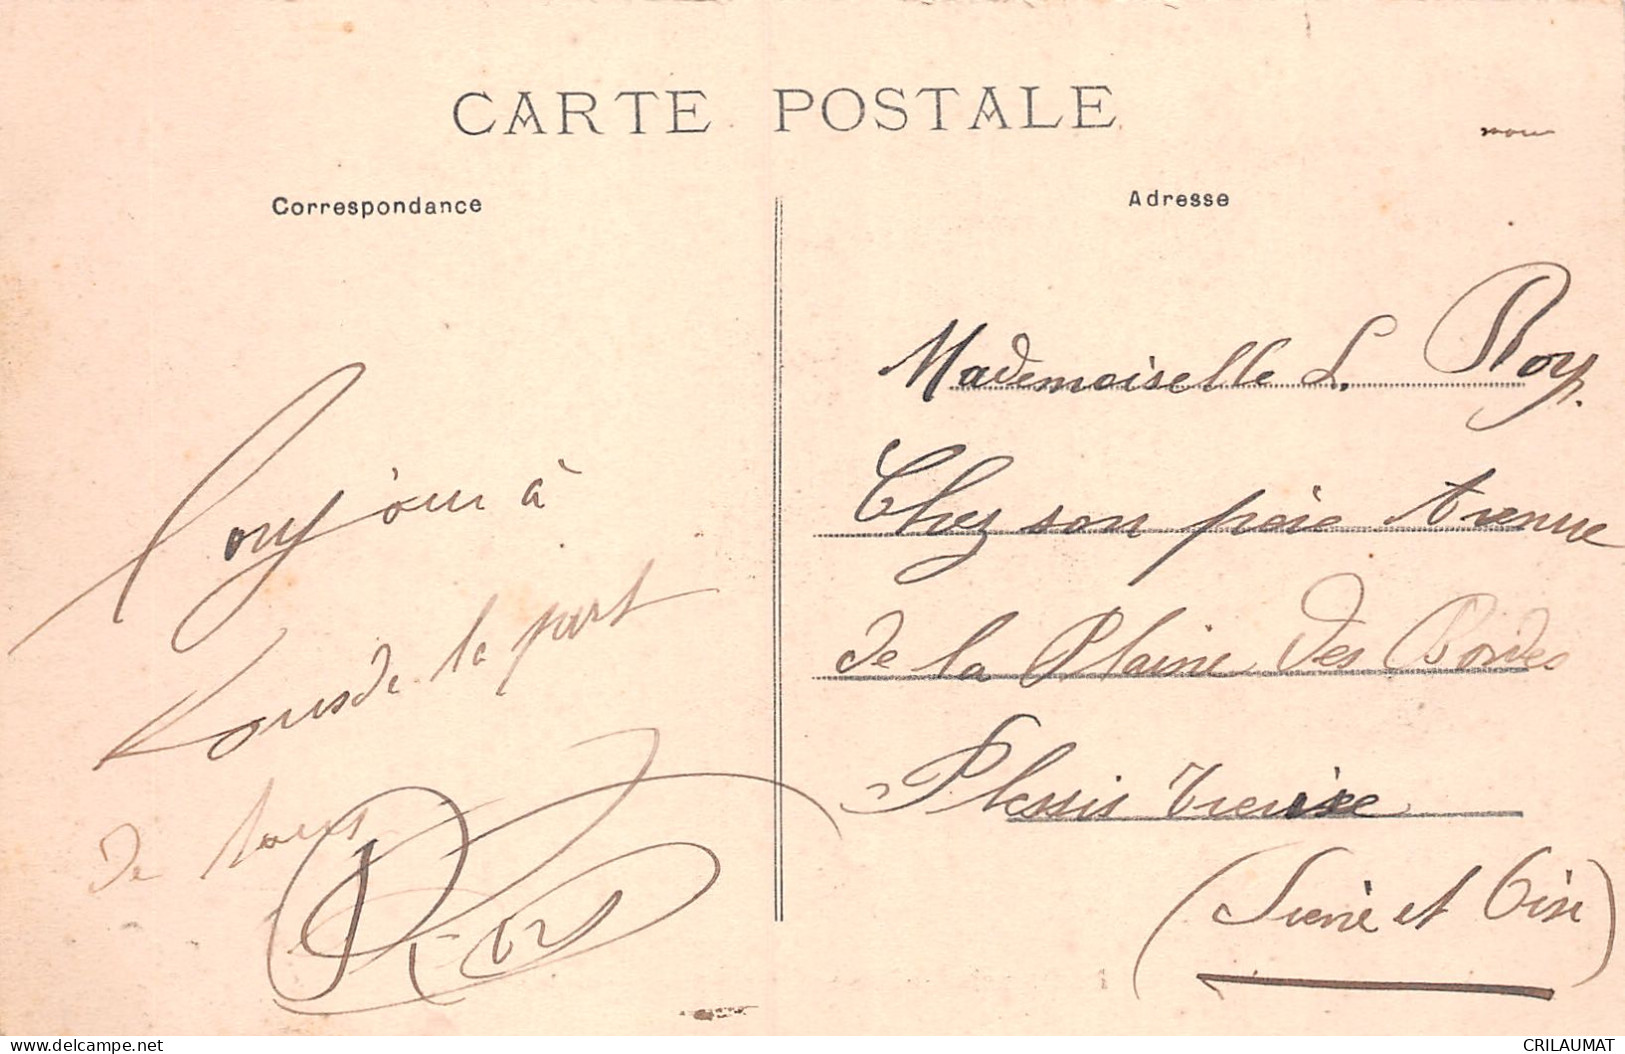 CARTE POSTALE
Correspondance
Adresse
Mademoiselle L. Roy.
Chez son père Avenue
de la Plaine des Bordes
Plessis Trevise
(Seine et Oise)
à
de la part
de tous
delcampe.net
CRILAUMAT